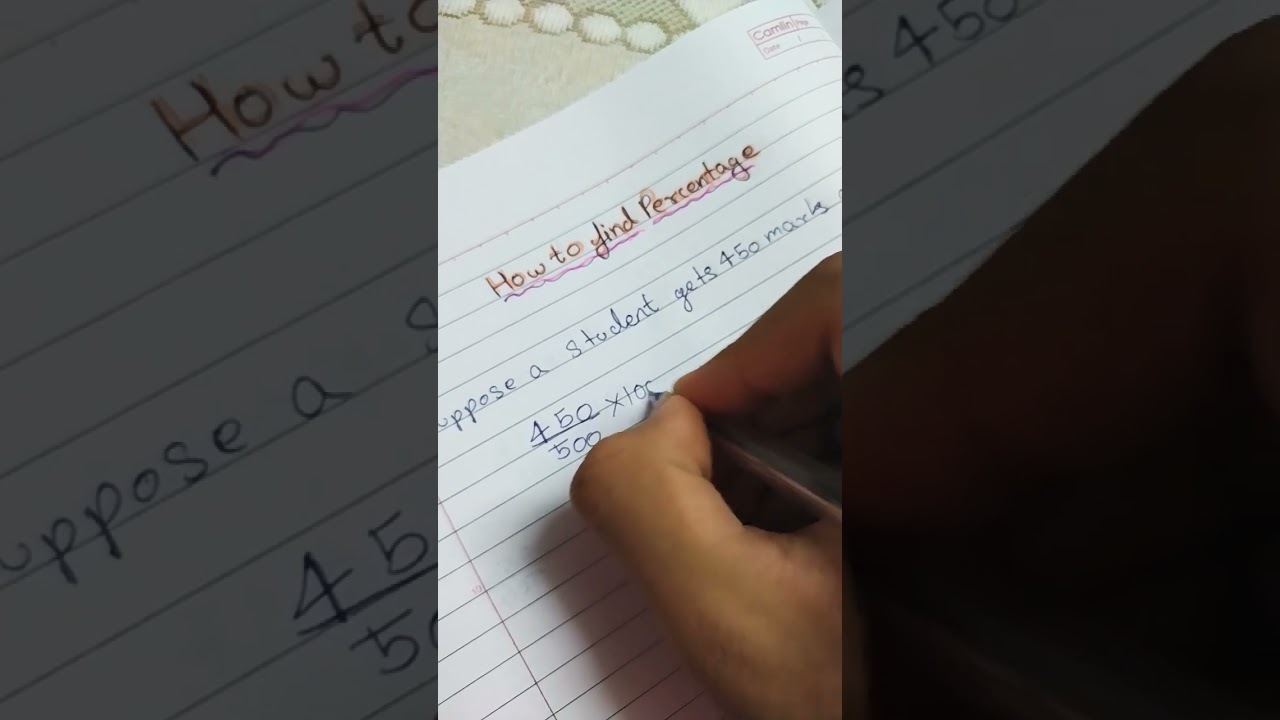 Camlin Page
Date
How to find Percentage
uppose a student gets 450 marks
450 ×100
500